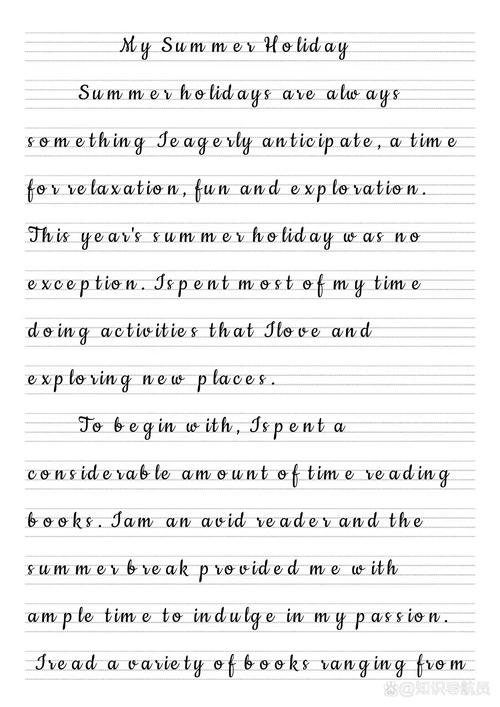 My Summer Holiday
Summer holidays are always
something I eagerly anticipate, a time
for relaxation, fun and exploration.
This year's summer holiday was no
exception. I spent most of my time
doing activities that I love and
exploring new places.
To begin with, I spent a
considerable amount of time reading
books. I am an avid reader and the
summer break provided me with
ample time to indulge in my passion.
I read a variety of books ranging from
@知识导航员